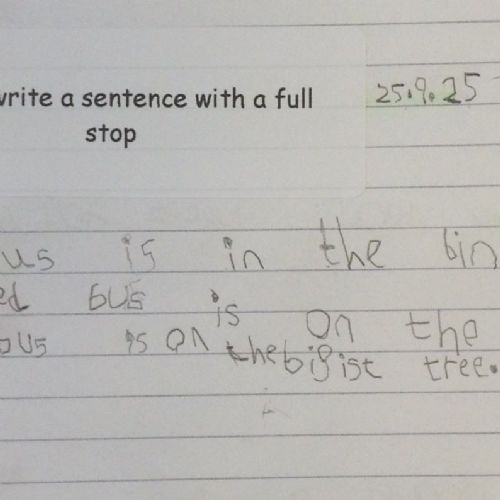 write a sentence with a full
stop
25.9.25
us is in the bin
ed bus is on the
bus is on the bigist tree.